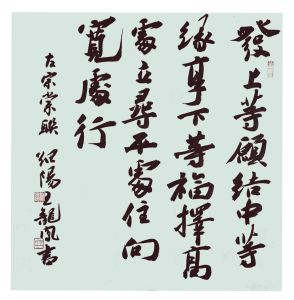 發上等願結中等
緣享下等福擇高
處立尋平處住向
寬處行
左宗棠聯 陽王龍風書